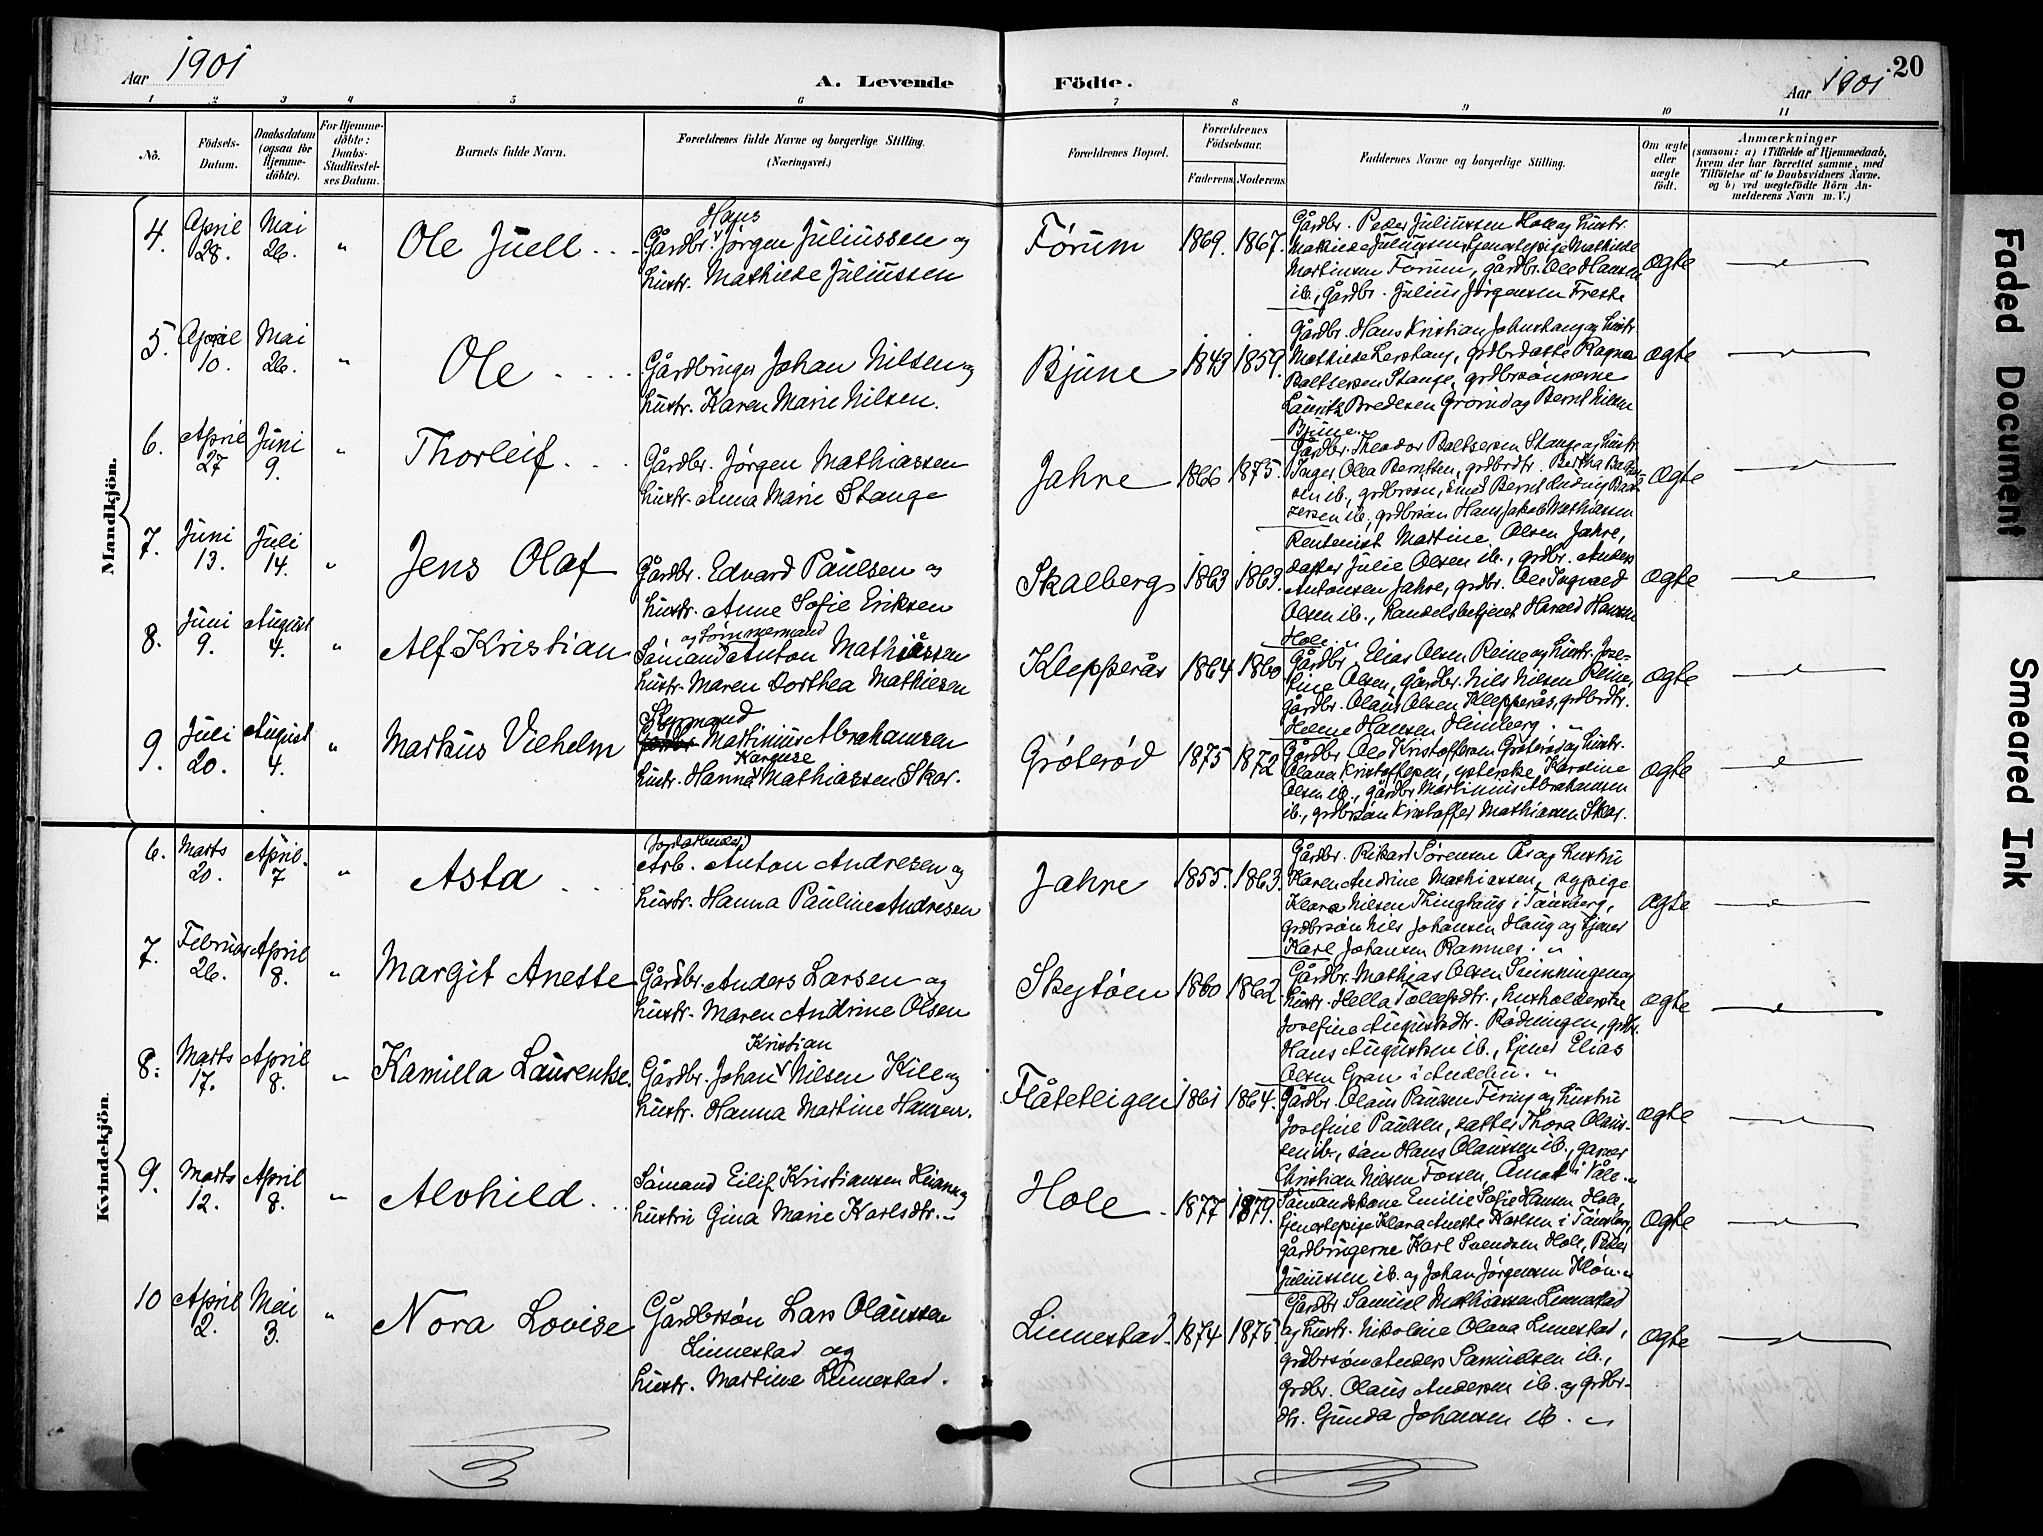 Aar 1901
A. Levende Födte.
Aar 1901
20
1 2 3 4 5 6 7 8 9 10 11
No.
Födsels-Datum.
Daabsdatum (ogsaa för Hjemme-döbte).
For Hjemme-döbte: Daabs-Stadfæstel-ses Datum.
Barnets fulde Navn.
Forældrenes fulde Navne og borgerlige Stilling. (Næringsvei.)
Forældrenes Bopæl.
Forældrenes Födselsaar.
Faderens. Moderens.
Faddernes Navne og borgerlige Stilling.
Om ægte eller uægte födt.
Anmærkninger
(saasom: a) i Tilfælde af Hjemmedaab, hvem der har forrettet samme, med Tilföielse af to Daabsvidners Navne, og b) ved uægtefödte Börn An-melderens Navn m. V.)
Mandkjön.
4. April 28. Mai 26. " Ole Juell
Hans
Gårdbr. Jørgen Juliussen og
hustr. Mathilde Juliussen
Fórum 1869. 1867.
Gårdbr. Peder Juliussen Hole og hustr.
Mathilde Juliussen, tjenestepige Mathilde
Martinsen Fórum, gårdbr. Ole Hansen
ib., gårdbr. Julius Jørgensen Freste
ægte
5. April 10. Mai 26. " Ole
Gårdbruger Johan Nilsen og
hustr. Karen Marie Nilsen.
Bjune 1843 1859.
Gårdbr. Hans Kristian
og hustr.
Mathilde, grdbrdatte Ragna
Baltsersen Stange, grdbrsönnerne
Lauritz Bredesen og Bernt Nilsen
Bjune.
ægte
6. April 27 Juni 9. " Thorleif
Gårdbr. Jørgen Mathiassen
hustr. Anna Marie Stange
Jahre 1866 1875.
Gårdbr. Theodor Baltsersen Stange og hustr.
Inger Olea Berntsen, grdbrdtr. Bertha
sen ib., grdbrsön, Bernt Ludvig
sersen ib., grdbrsön Hans Jakob Mathiassen
ægte
7. Juni 13. Juli 14. " Jens Olaf
Gårdbr. Edvard Paulsen og
hustr. Anne Sofie Eriksen
Skalberg 1863 1863.
Rentenist Martine Olsen Jahre,
datter Julie Olsen ib., grdbr. Anders
Antonsen Jahre, grdbr. Ole Ingvald
Olsen ib., handelsbetjent Harald Hansen
Hole.
ægte
8. Juni 9. August 4. " Alf Kristian
og tömmermand
Sömand Anton Mathiassen
hustr. Maren Dorthea Mathiesen
Klepperås 1864 1860
Gårdbr. Elias Olsen Reine og hustr. Jose-
fine Olsen, gårdbr. Nils Nilsen Reine,
gårdbr. Olaus Olsen Klepperås, grdbrdtr.
Helene Hansen Himberg. "
ægte
9. Juli 20. August 4. " Markus Vilhelm
Styrmand
Martinius Abrahamsen
Karense
hustr. Hanna Mathiassen Skar.
Gróterød 1875 1872
Gårdbr. Ole Kristoffersen Gróterød og hustr.
Olava Kristoffersen, Karoline
Olsen ib., gårdbr. Martinius Abrahamsen
ib., grdbrsön Kristoffer Mathiassen Skar.
ægte
Kvindekjön.
6. Marts 20. April 7 " Asta
Jordarbeider
Arb. Anton Andresen og
hustr. Hanna Pauline Andresen
Jahre 1855. 1863.
Gårdbr. Rikard Sørensen Ås og hustru
Karen Andrine Mathiassen, sypige
Klara Nilsen Thinghaug i Tønsberg,
grdbrsön Nils Johansen Haug og tjener
Karl Johansen Ramnes. "
ægte
7. Februar 26. April 8. " Margit Anette
Gårdbr. Anders Larsen og
hustr. Maren Andrine Olsen
Skejtøen 1860 1862
Gårdbr. Mathias Olsen og
hustr. Hella Tollefsdtr., husholderske
Josefine Augustsdtr. Rødningen, grdbr.
Hans Augustsen ib., tjener Elias
Olsen Gran i Andebu. "
ægte
8. Marts 17. April 8. " Kamilla Laurentse.
Kristian
Gårdbr. Johan Nilsen Kile og
hustr. Hanna Martine Hansen.
Flåtetleigen 1861 1864.
Gårdbr. Olaus Paulsen og hustru
Josefine Paulsen, datter Thora Olaus-
sen ib., sön Hans Olaussen ib., garver
Christian Nilsen Fossen, Åmot i Våle. "
ægte
9. Marts 12. April 8. " Alvhild
Sömand Eilif Kristiansen og
hustru Gina Marie Karlsdtr. "
Hole 1877 1879.
Sömandskone Emilie Sofie Hansen Hole,
tjenestepige Klara Anette Karlsen i Tønsberg,
gårdbrugerne Karl Svendsen Hole, Peder
Juliussen ib. og Johan Jørgensen "
ægte
10 April 2. Mai 3. " Nora Lovise
Gårdbrsøn Lars Olaussen
Linnestad og
hustr. Martine Linnestad.
Linnestad 1874 1875.
Gårdbr Samuel Mathiassen Linnestad
og hustr. Nikoline Olava Linnestad,
grdbrsön Anders Samuelsen ib.,
Grdbr. Olaus Andersen ib. og grdbr-
dtr. Gunda Johansen ib. "
ægte
Faded Document
Smeared Ink